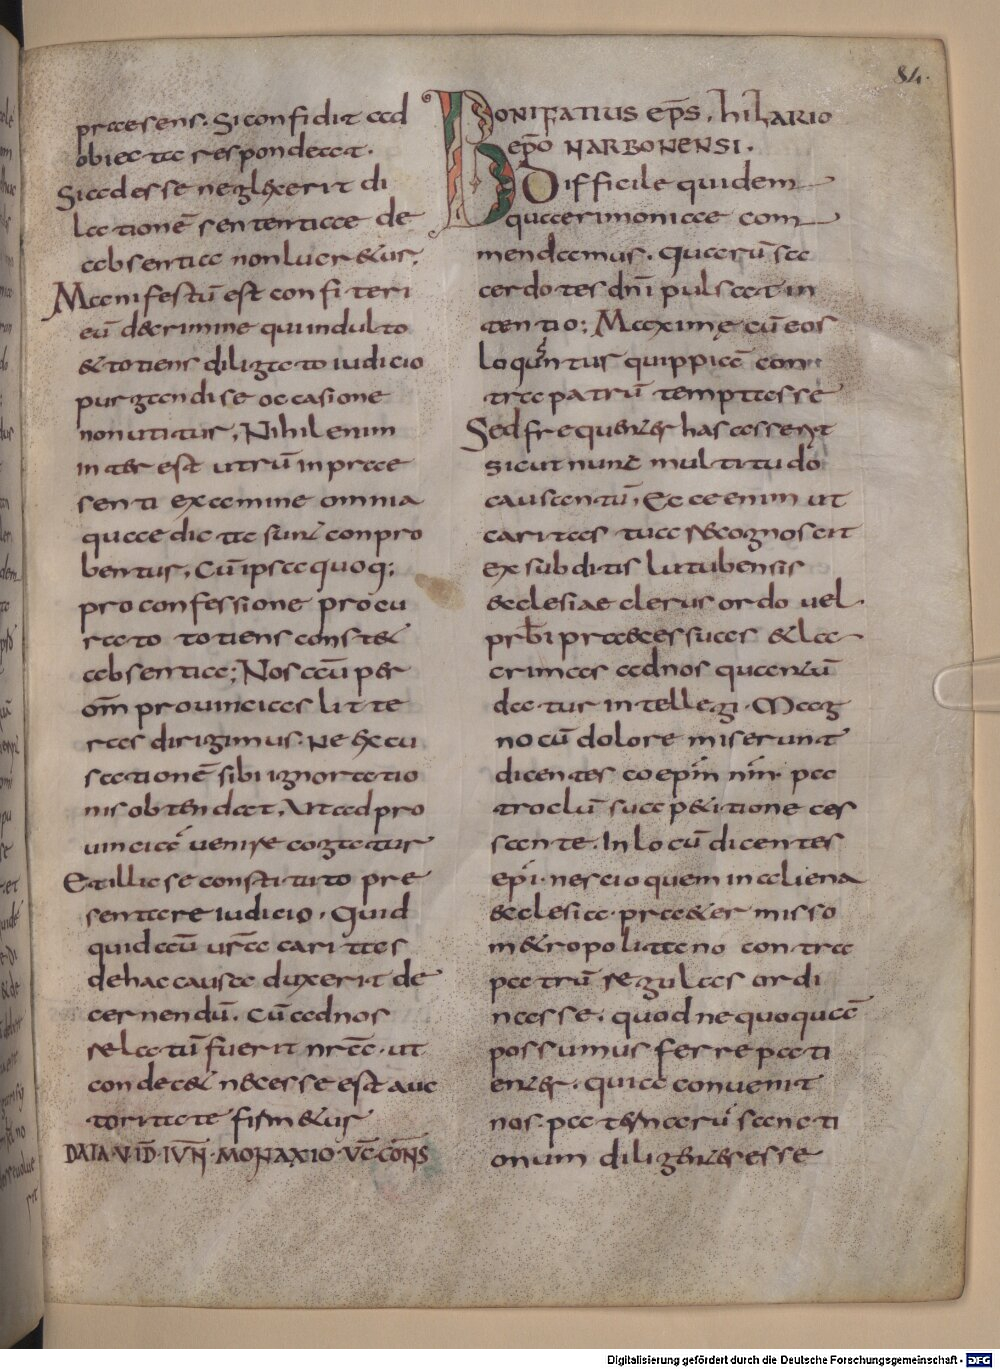 84.
praesens. Si confidit ad
obiecta respondeat.
Si adesse neglexerit di
lationē sententiae de
absentia non lucr&ur;
Manifestū est confiteri
eū decrimine qui indulto
& totiens diligato iudicio
purgandi se occasione
non utitur, Nihil enim
inter est utrū in prae
senti examine omnia
quae dicta sunt conpro
bentur, Cū ipsa quoq;
pro confessione procu
rato totiens const&
absentia; Nos aū per
om̄ prouincias litte
ras dirigimus. Ne excu
sationē sibi ignoratio
nis obtendat, Ut ad pro
uinciā uenire cogatur
Et illic se constituto pre
sentare iudicio. Quid
quid aū ur̄a caritas
de hac causa duxerit de
cernendū. Cū ad nos
relatū fuerit nr̄a. ut
condec& necesse est auc
toritate firm&ur
DATA V ID IVN̄ MONAXIO V̄C CON̄S
Bonifatius ep̄s. hilario
ep̄o narbonensi.
Difficile quidem
quaerimoniae com
mendamus. Quarū sa
cerdotes dn̄i pulsat in
tentio; Maxime cū eos
loquntur quippiā con
tra patrū temptasse
Sed frequenter has asserit
sicut nunc multitudo
causantū, Ecce enim ut
caritas tuae recognoscit
ex subditis lutubensis
&clesiae clerus ordo uel
prb̄i pra&es suas & la
crimas ad nos quantū
datur intellegi. Mag
no cū dolore miserunt
dicentes coep̄m nr̄m. pa
troclū sua p&itione ces
sante. In locū dicentes
ep̄i. nescio quem in aliena
&clesia. pra&er misso
m&ropolitano contra
patrū regulas ordi
nasse. quod nequoquā
possumus ferre pati
enter. quia conuenit
nos. paternarū sancti
onum diligenter esse
Digitalisierung gefördert durch die Deutsche Forschungsgemeinschaft - DFG